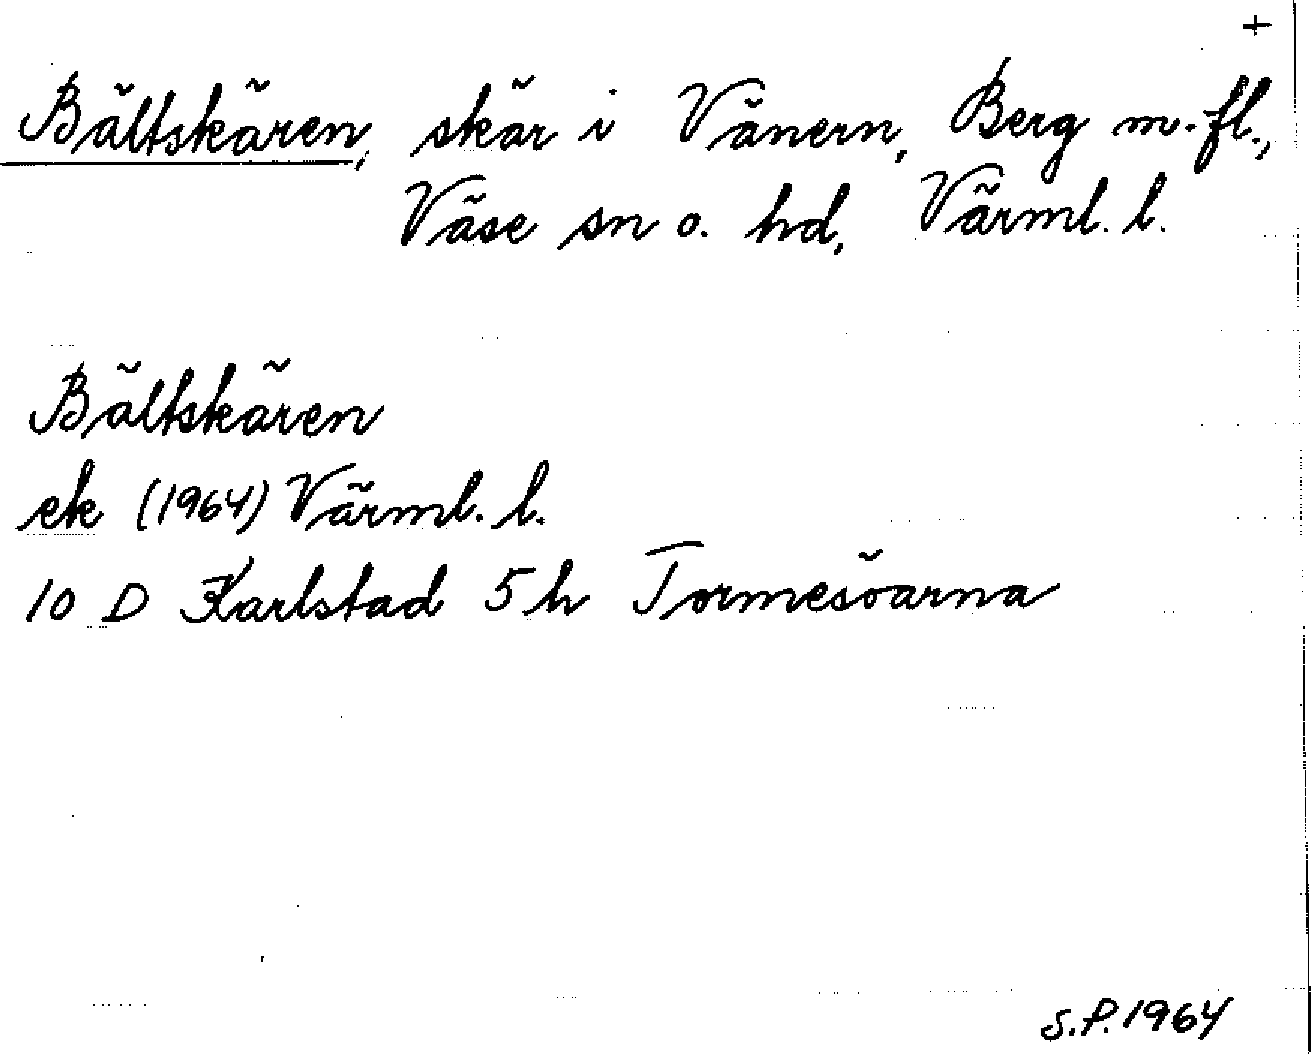 +
Bältskären, skär i Vänern, Berg m.fl.,
Väse sn o. hd, Värml. l.
Bältskären
ek (1964) Värml. l.
10 D Karlstad 5h Tormesöarna
S.P. 1964